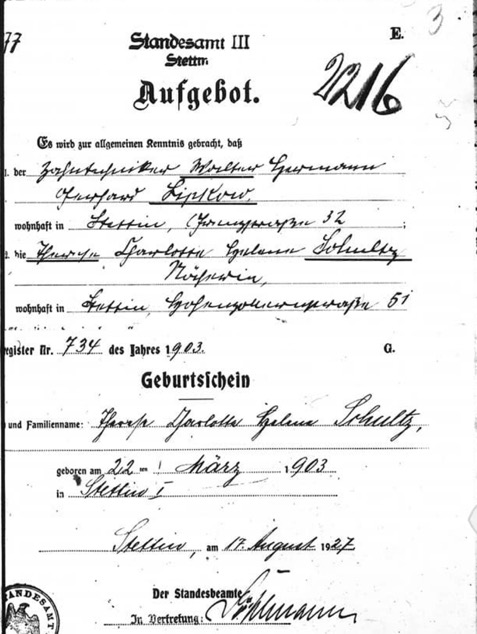 77
E.
3
Standesamt III
Stettin
2216
Aufgebot.
Es wird zur allgemeinen Kenntnis gebracht, daß
1. der Zahntechniker Walter Hermann
Gerhard Lipkow,
wohnhaft in Stettin, 32
2. die Therese Charlotte Helene Schultz
Näherin,
wohnhaft in Stettin, Hohenzollernstraße 51
Register Nr. 734 des Jahres 1903. G.
Geburtsschein
und Familienname: Therese Charlotte Helene Schultz,
geboren am 22 ten März 1903
in Stettin I
Stettin, am 17. August 1927
Der Standesbeamte
In Vertretung:
STANDESAMT